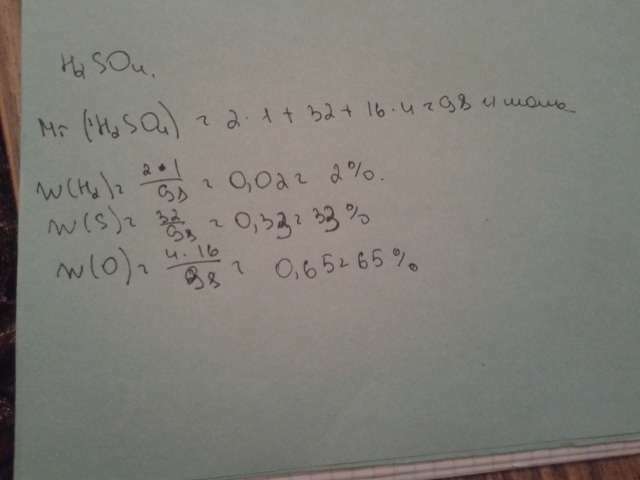 H₂SO₄.
Mr (H₂SO₄) = 2·1+32+16·4=98 г/моль
W(H₂)= 2·1/98 = 0,02= 2%.
W(S)= 32/98 = 0,33= 33%
W(O)= 4·16/98 = 0,65=65%